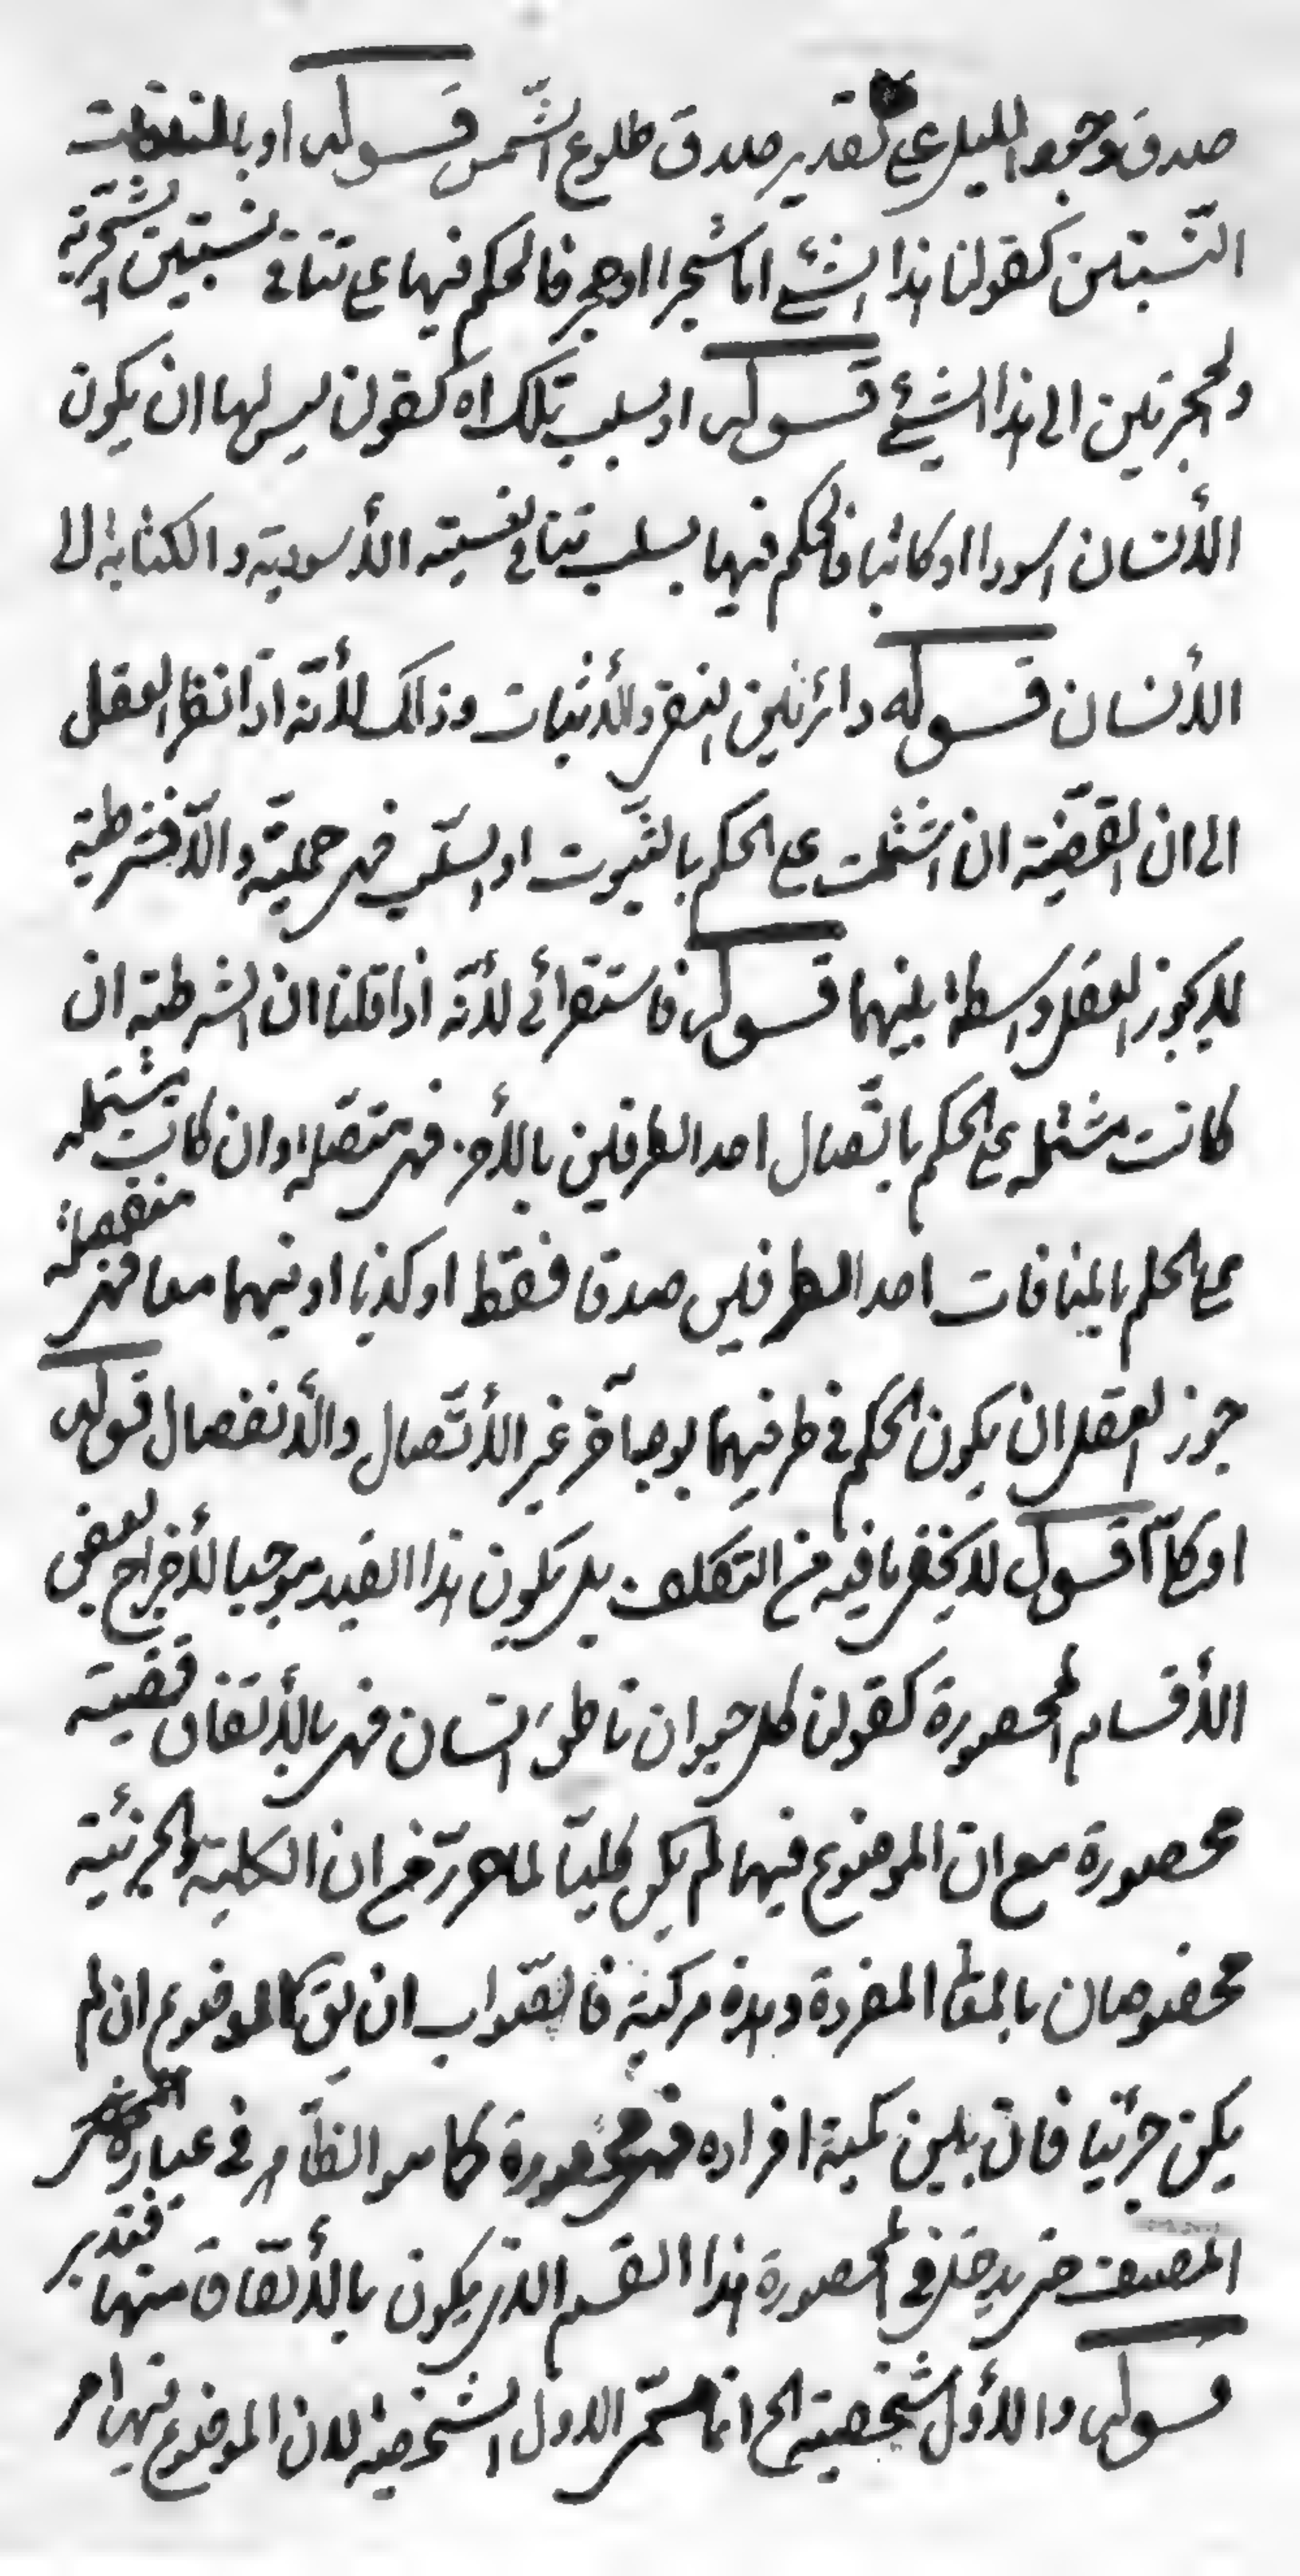 صدق وجود الليل على تقدير صدق طلوع الشّمس قوله او بالمنافات
النّسبتين كقولنا هذا الشئ اما شجرا او حجر فالحكم فيها على تنافي نسبتين الشّجريّة
والحجريتين الى هذا الشئ قوله او بسلب تلك اه كقولنا ليس لها ان يكون
الأنسان اسودا او كاتبا فالحكم فيها بسلب تنافي نسبته الأسودية والكتابة الى
الأنسان قوله دائر بين النفي والأثبات وذلك لأنّه اذا نظر العقل
الى ان القضّية ان اشتملت على الحكم بالثبوت او السّلب فهى حمليّة والّا فشرطية
لا يجوز العقل واسطة بينهما قوله فاستقرائى لأنّه اذا قلنا ان الشرطية ان
كانت مشتملة على الحكم باتّصال احد الطرفين بالأخر فهى متصّلة وان كانت مشتملة
على الحكم بالمنافات احد الطرفين صدقا فقط او كذبا او فيهما معا فهى منفصلة
جوز العقل ان يكون الحكم في طرفيها بوجه آخر غير الأتّصال والأنفصال قوله
او كلّا اقول لا يخفى ما فيه من التكلف بل يكون هذا القيد موجبا لأخراج بعض
الأقسام المحصورة كقولنا كل حيوان ناطق انسان فهى بالأتفاق قضية
محصورة مع انّ الموضوع فيها لم يكن كليّا لما مرّ من ان الكلية والجزئية
مخصوصان بالمعنا المفردة وهذه مركبة فالصّواب ان يق كالموضوع ان لم
يكن جزئيا فان بين كمية افراده فمحصورة كما هو الظاهر في عبارة
المصنف حتى يدخل في المحصورة هذا القسم الذى يكون بالأتّفاق منها فتدبر
قوله والأوّل شخصية الح انما سمّى الاول الشخصية لان الموضوع فيها امر